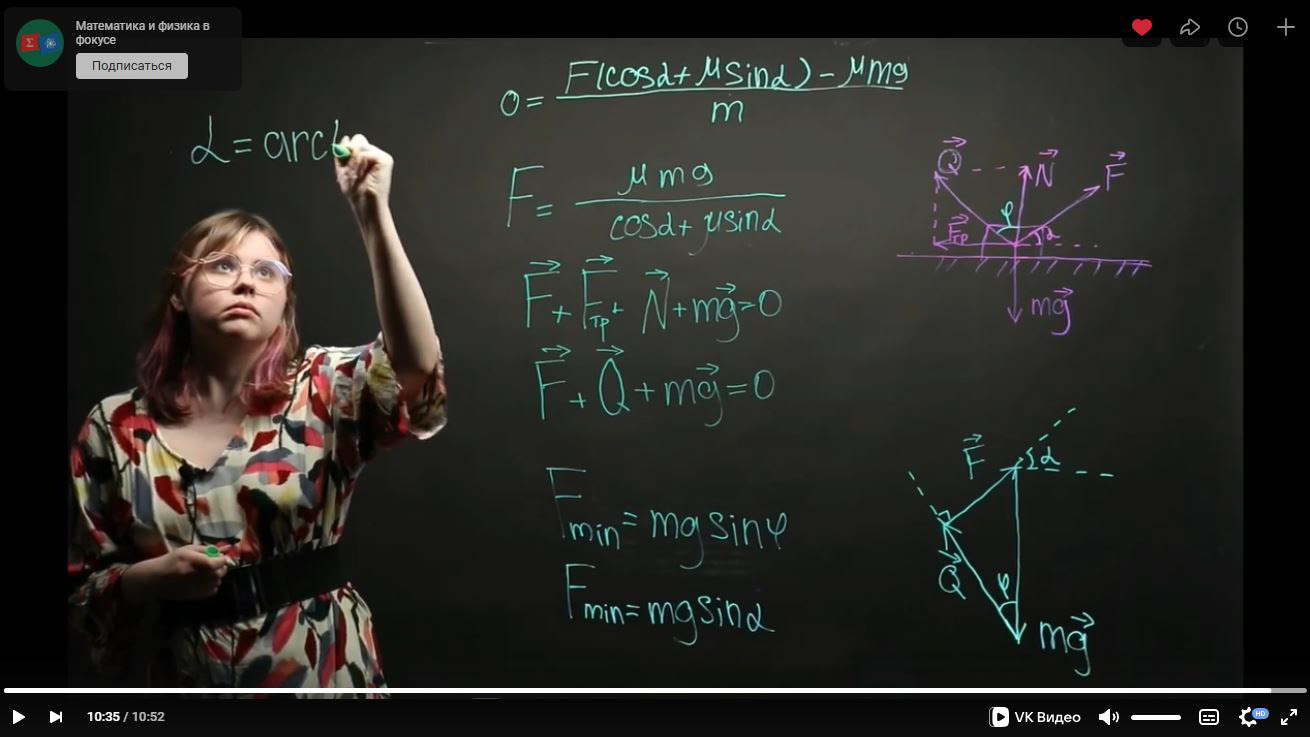 Математика и физика в
фокусе
Подписаться
α = arct
0 = (F(cosα + μsinα) - μmg) / m
F = μmg / (cosα + μsinα)
F⃗ + F⃗тр + N⃗ + mg⃗ = 0
F⃗ + Q⃗ + mg⃗ = 0
Fmin = mg sinφ
Fmin = mg sinα
Q⃗ N⃗ F⃗
φ
F⃗тр α
mg⃗
F⃗ α
Q⃗ φ
mg⃗
10:35 / 10:52
VK Видео
HD